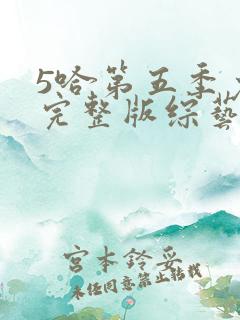 5哈第五季
完整版综艺
宫本铃妥
未经同意禁止转载